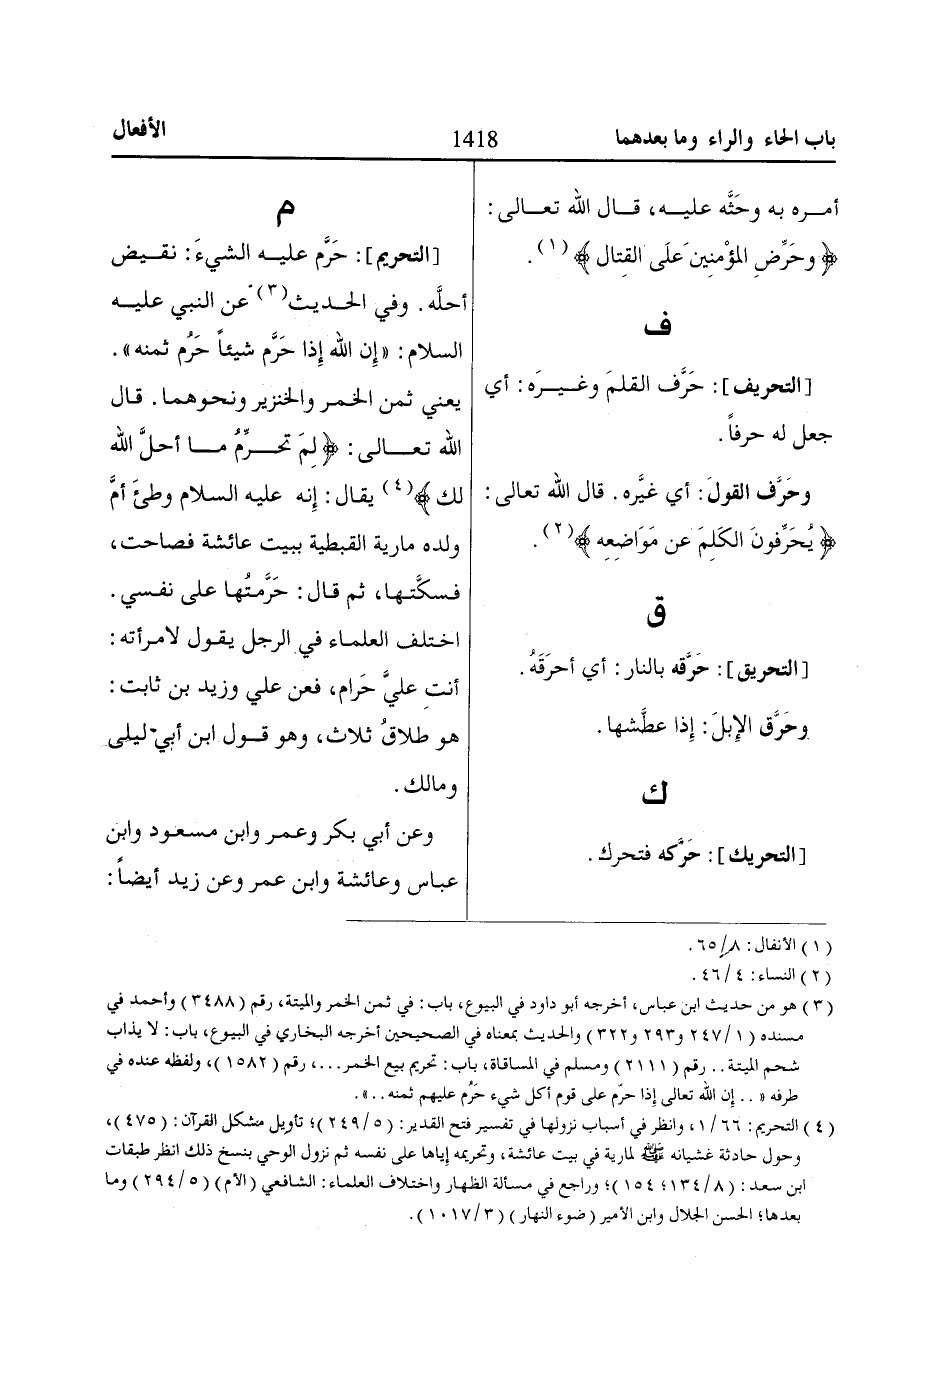 باب الحاء والراء وما بعدهما
1418
الأفعال
أمره به وحَثَّه عليه، قال الله تعالى:
﴿ وحَرِّضِ المؤْمنينَ عَلَى القتال ﴾(١).
ف
[التحريف]: حَرَّف القلمَ وغيرَه: أي
جعل له حرفاً.
وحَرَّف القولَ: أي غيَّره. قال الله تعالى:
﴿ يُحَرِّفونَ الكَلِمَ عن مَوَاضِعِه ﴾(٢).
ق
[التحريق]: حَرَّقه بالنار: أي أحرَقَهُ.
وحَرَّق الإبلَ: إذا عطَّشها.
ك
[التحريك]: حَرَّكه فتحرك.
م
[التحريم]: حَرَّم عليه الشيءَ: نقيض
أحلَّه. وفي الحديث(٣) عن النبي عليه
السلام: «إن الله إذا حَرَّم شيئاً حَرُم ثمنه».
يعني ثمن الخمر والخنزير ونحوهما. قال
الله تعالى: ﴿ لِمَ تحرِّمُ ما أحلَّ الله
لك ﴾(٤) يقال: إنه عليه السلام وطئَ أمَّ
ولده مارية القبطية ببيت عائشة فصاحت،
فسكَّتها، ثم قال: حَرَّمتُها على نفسي.
اختلف العلماء في الرجل يقول لامرأته:
أنت عليَّ حَرام، فعن علي وزيد بن ثابت:
هو طلاقُ ثلاث، وهو قول ابن أبي ليلى
ومالك.
وعن أبي بكر وعمر وابن مسعود وابن
عباس وعائشة وابن عمر وعن زيد أيضاً:
(١) الأنفال: ٨/ ٦٥.
(٢) النساء: ٤/ ٤٦.
(٣) هو من حديث ابن عباس، أخرجه أبو داود في البيوع، باب: في ثمن الخمر والميتة، رقم (٣٤٨٨) وأحمد في
مسنده (١/ ٢٤٧ و٢٩٣ و٣٢٢) والحديث بمعناه في الصحيحين أخرجه البخاري في البيوع، باب: لا يذاب
شحم الميتة.. رقم (٢١١١) ومسلم في المساقاة، باب: تحريم بيع الخمر...، رقم (١٥٨٢)، ولفظه عنده في
طرفه «.. إن الله تعالى إذا حرّم على قوم أكل شيء حَرُم عليهم ثمنه..».
(٤) التحريم: ٦٦/ ١، وانظر في أسباب نزولها في تفسير فتح القدير: (٥/ ٢٤٩)؛ تأويل مشكل القرآن: (٤٧٥)،
وحول حادثة غشيانه ﷺ لمارية في بيت عائشة، وتحريمه إياها على نفسه ثم نزول الوحي بنسخ ذلك انظر طبقات
ابن سعد: (٨/ ١٣٤؛ ١٥٤)؛ وراجع في مسألة الظهار واختلاف العلماء: الشافعي (الأم) (٥/ ٢٩٤) وما
بعدها؛ الحسن الجلال وابن الأمير (ضوء النهار) (٣/ ١٠١٧).